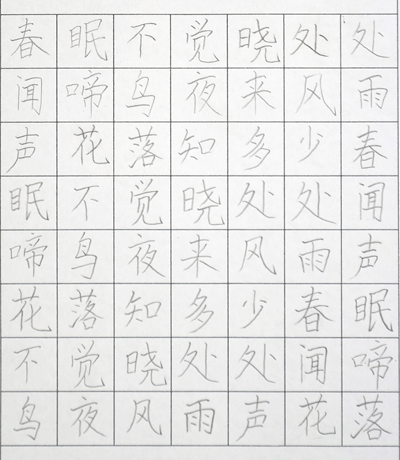 春眠不觉晓处处
闻啼鸟夜来风雨
声花落知多少春
眠不觉晓处处闻
啼鸟夜来风雨声
花落知多少春眠
不觉晓处处闻啼
鸟夜风雨声花落